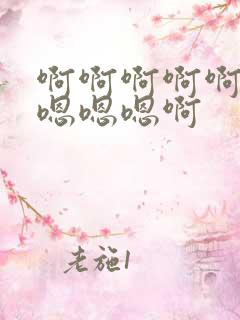 啊啊啊啊啊
嗯嗯嗯啊
老施1